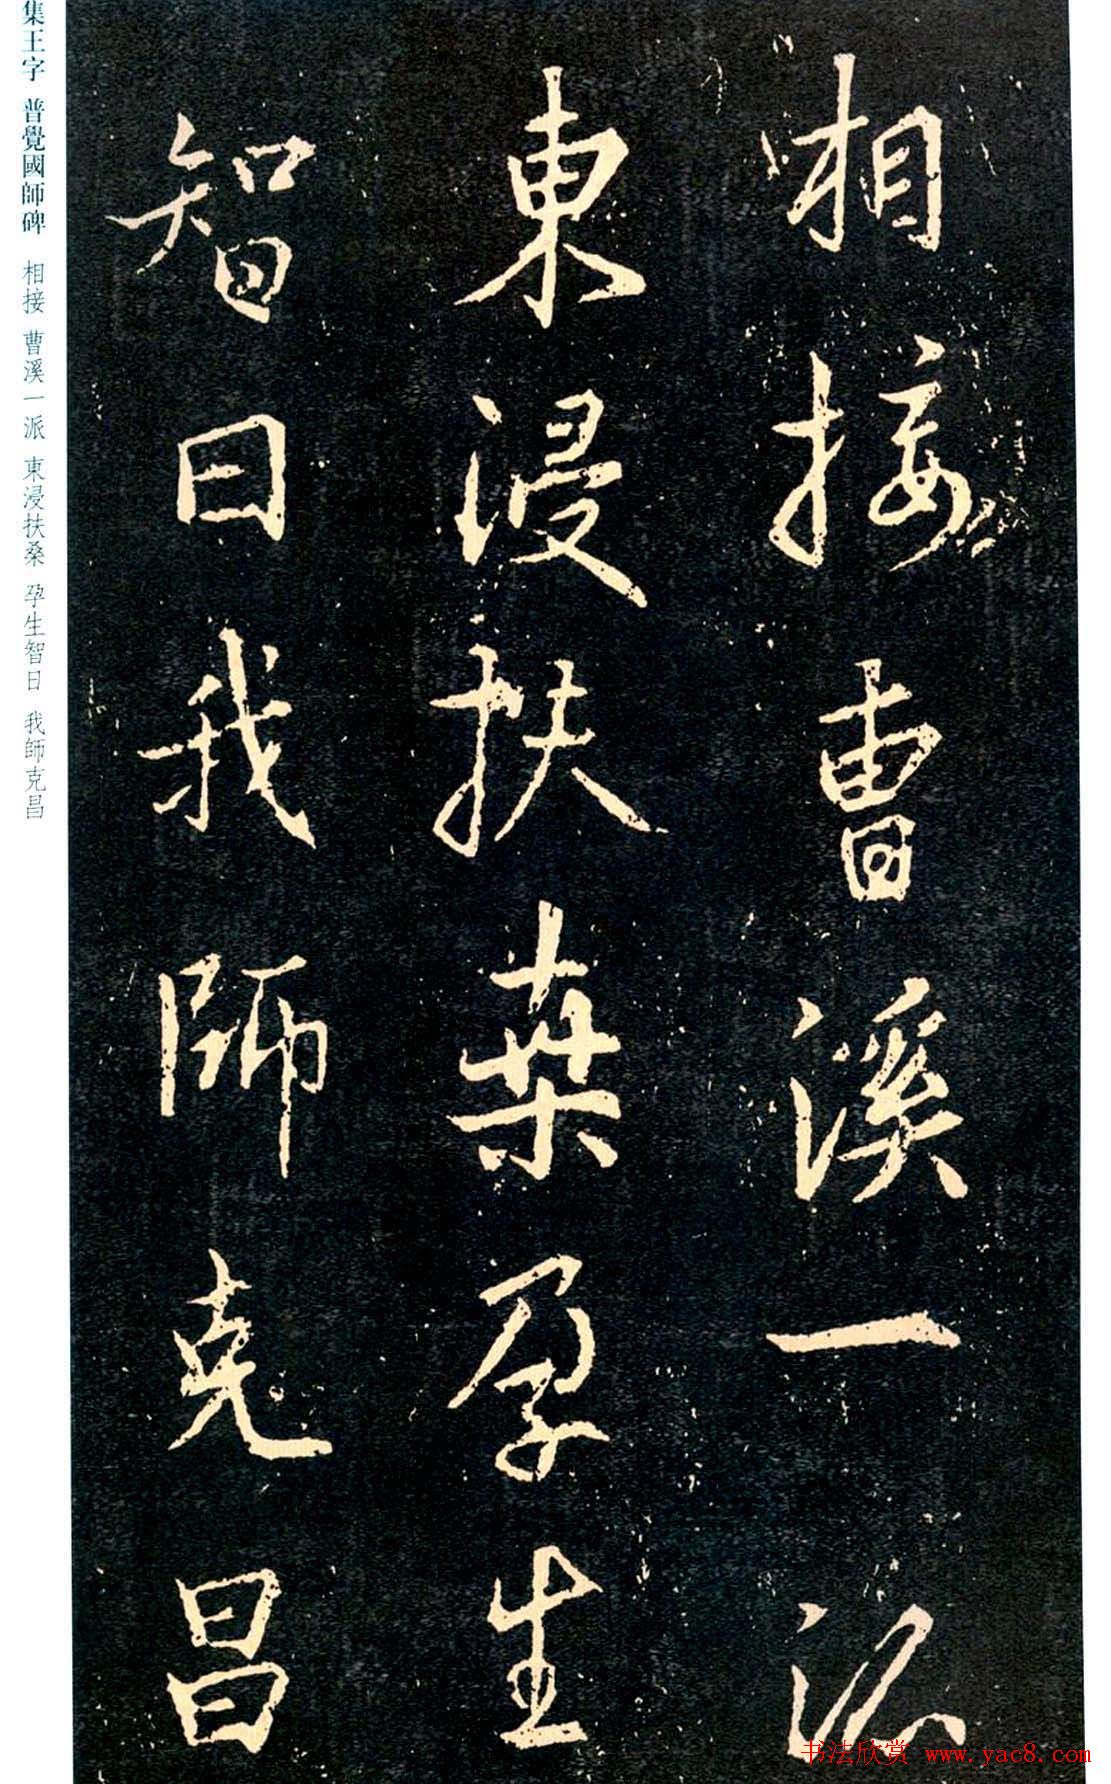 相接曹溪一派
東浸扶桑孕生
智日我師克昌
集王字 普覺國師碑 相接 曹溪一派 東浸扶桑 孕生智日 我師克昌
书法欣赏 www.yac8.com